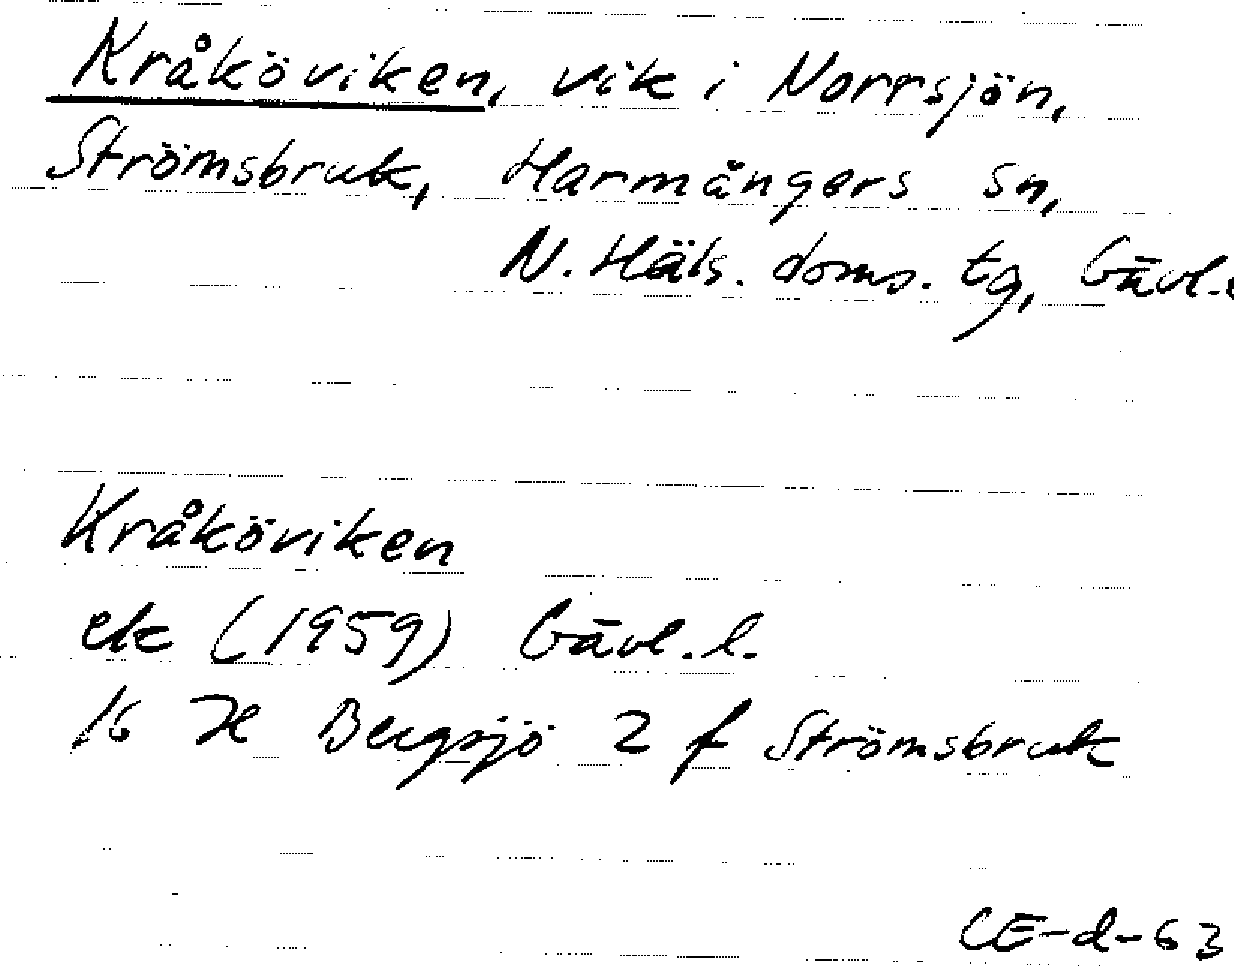 Kråköviken, vik i Norrsjön,
Strömsbruk, Harmångers sn,
N. Häls. doms. tg, Gävl.
Kråköviken
ek (1959) Gävl. l.
16 H Bergsjö 2 f Strömsbruk
CE-d-63